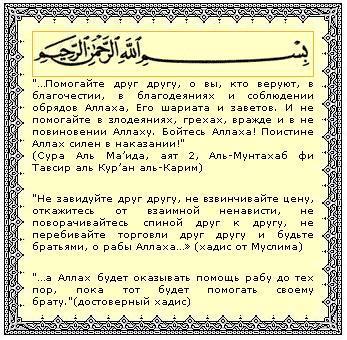 بِسْمِ اللهِ الرَّحْمٰنِ الرَّحِيْمِ
"...Помогайте друг другу, о вы, кто веруют, в
благочестии, в благодеяниях и соблюдении
обрядов Аллаха, Его шариата и заветов. И не
помогайте в злодеяниях, грехах, вражде и в не
повиновении Аллаху. Бойтесь Аллаха! Поистине
Аллах силен в наказании!"
(Сура Аль Ма’ида, аят 2, Аль-Мунтахаб фи
Тавсир аль Кур’ан аль-Карим)
"Не завидуйте друг другу, не взвинчивайте цену,
откажитесь от взаимной ненависти, не
поворачивайтесь спиной друг к другу, не
перебивайте торговли друг другу и будьте
братьями, о рабы Аллаха...» (хадис от Муслима)
"...а Аллах будет оказывать помощь рабу до тех
пор, пока тот будет помогать своему
брату."(достоверный хадис)